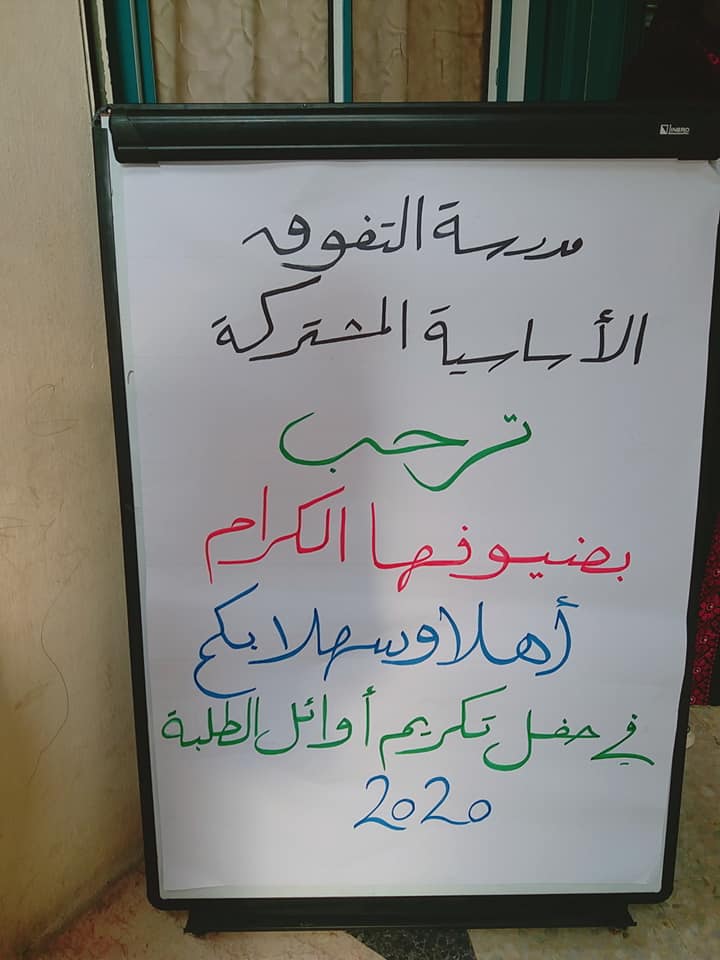 مدرسة التفوق
الأساسية المشتركة
ترحب
بضيوفها الكرام
أهلا وسهلا بكم
في حفل تكريم أوائل الطلبة
2020